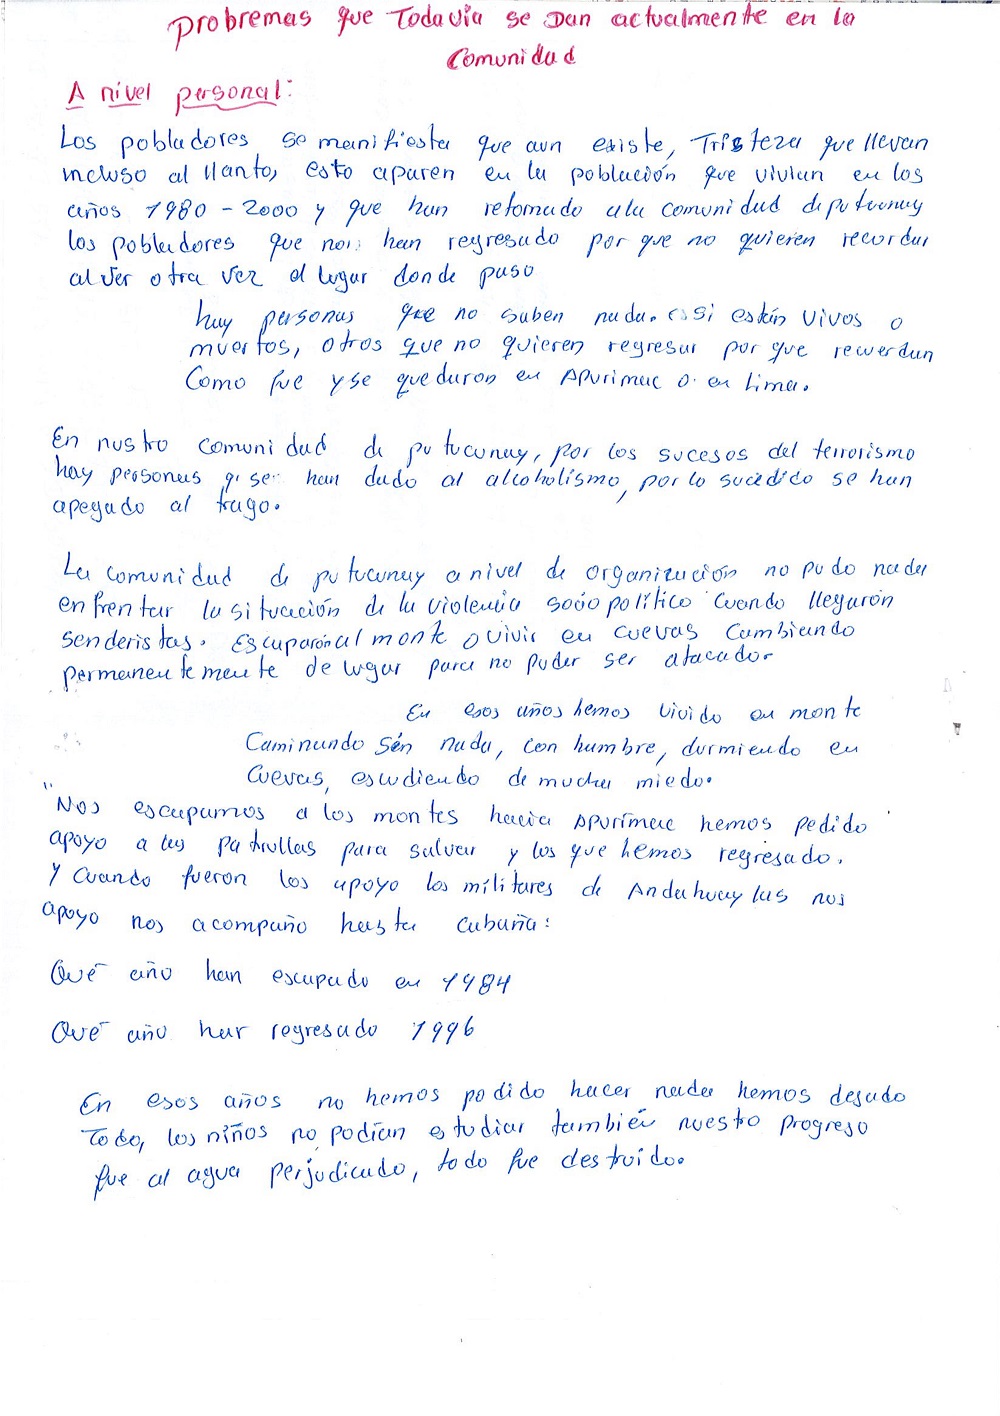 probremas que Todavia se Dan actualmente en la
Comunidad
A nivel personal:
Los pobladores se manifiesta que aun existe, Tristeza que llevan
incluso al llanto, esto aparen en la población que vivian en los
años 1980 - 2000 y que han retornado a la comunidad de putucunay
los pobladores que no han regresado por que no quieren recordar
al ver otra vez el lugar donde paso
hay personas que no saben nada. si están vivos o
muertos, otros que no quieren regresar por que recuerdan
Como fue y se quedaron en Apurimac o en Lima.
En nustro comunidad de putucunay, por los sucesos del terrorismo
hay personas q se han dado al alcoholísmo, por lo sucedido se han
apegado al trago.
La comunidad de putucunay a nivel de organización no pudo nada
enfrentar la situación de la violencia socio político cuando llegarón
senderistas. Escuparón al monte o vivir en cuevas Cambiando
permanentemente de lugar para no poder ser atacador
En esos años hemos vivido en monte
Caminando sén nada, con hambre, durmiendo en
Cuevas, escudiendo de mucha miedo.
"Nos escapamos a los montes hacia Apurímac hemos pedido
apoyo a las patrullas para salvar y los que hemos regresado.
Y Cuando fueron los apoyo los militares de Andahuaylas nos
apoyo nos acompaño hasta cabaña:
Qué año han escapado en 1984
Qué año har regresado 1996
En esos años no hemos podido hacer nada hemos dejado
Todo, los niños no podían estudiar también nuestro progreso
fue al agua perjudicado, todo fue destruído.